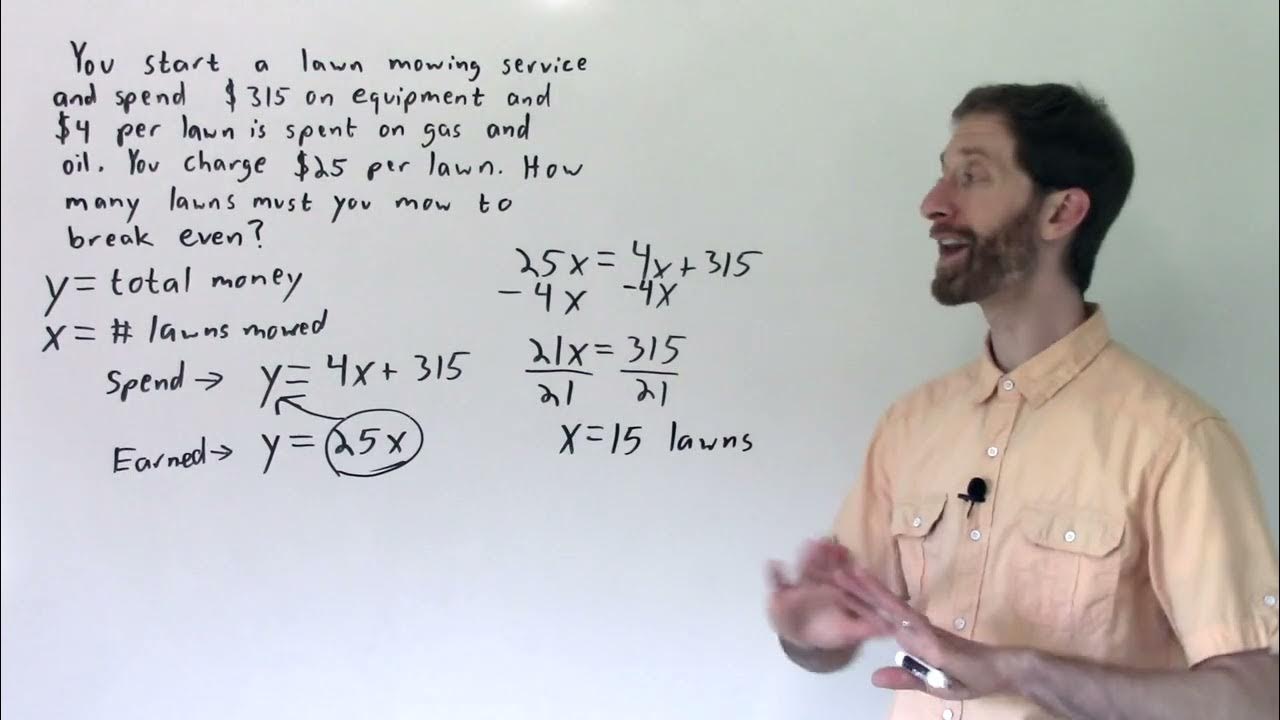 You start a lawn mowing service
and spend $315 on equipment and
$4 per lawn is spent on gas and
oil. You charge $25 per lawn. How
many lawns must you mow to
break even?
y = total money
x = # lawns mowed
Spend → y = 4x + 315
Earned → y = 25x
25x = 4x + 315
- 4x -4x
21x = 315
21 21
x = 15 lawns